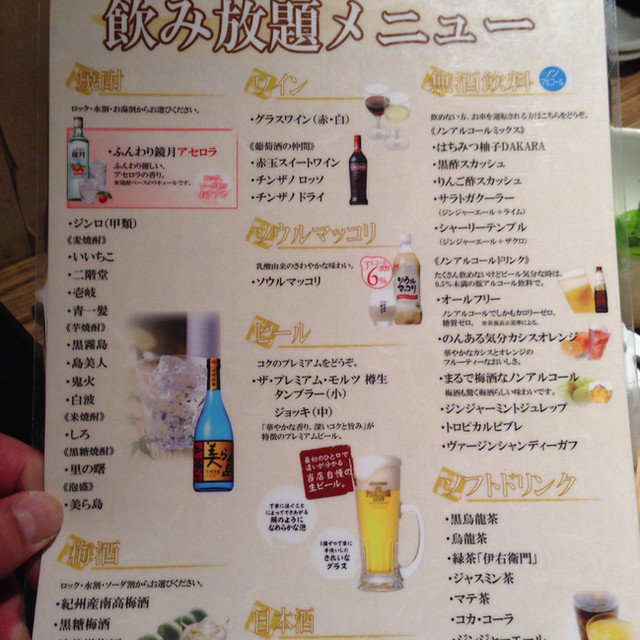 飲み放題メニュー
焼酎
ロック・水割・お湯割からお選びください。
・ふんわり鏡月アセロラ
ふんわり優しい、
アセロラの香り。
※焼酎ベースのリキュールです。
・ジンロ(甲類)
《麦焼酎》
・いいちこ
・二階堂
・壱岐
・青一髪
《芋焼酎》
・黒霧島
・島美人
・鬼火
・白波
《米焼酎》
・しろ
《黒糖焼酎》
・里の曙
《泡盛》
・美ら島
梅酒
ロック・水割・ソーダ割からお選びください。
・紀州産南高梅酒
・黒糖梅酒
ワイン
・グラスワイン(赤・白)
《葡萄酒の仲間》
・赤玉スイートワイン
・チンザノ ロッソ
・チンザノ ドライ
ソウルマッコリ
乳酸由来のさわやかな味わい。
・ソウルマッコリ
アルコール
6%
ビール
コクのプレミアムをどうぞ。
・ザ・プレミアム・モルツ 樽生
タンブラー(小)
ジョッキ(中)
「華やかな香り、深いコクと旨み」が
特徴のプレミアムビール。
最初のひと口で
違いが分かる
当店自慢の
生ビール。
丁寧に注ぐこと
によってできあがる
絹のように
なめらかな泡
1個ずつ丁寧に
手洗いした
きれいな
グラス
日本酒
無酒飲料
ノン
アルコール
飲めない方、お車を運転される方はこちらをどうぞ。
《ノンアルコールミックス》
・はちみつ柚子DAKARA
・黒酢スカッシュ
・りんご酢スカッシュ
・サラトガクーラー
(ジンジャーエール+ライム)
・シャーリーテンプル
(ジンジャーエール+ザクロ)
《ノンアルコールドリンク》
たくさん飲めないけどビール気分な時は、
0.5%未満の瓶アルコール飲料で。
・オールフリー
ノンアルコールでしかもカロリーゼロ、
糖質ゼロ。※栄養表示基準による。
・のんある気分カシスオレンジ
華やかなカシスとオレンジの
フルーティーなおいしさ。
・まるで梅酒なノンアルコール
梅酒も驚く梅酒らしい味わいです。
・ジンジャーミントジュレップ
・トロピカルビブレ
・ヴァージンシャンディーガフ
ソフトドリンク
・黒烏龍茶
・烏龍茶
・緑茶「伊右衛門」
・ジャスミン茶
・マテ茶
・コカ・コーラ
・ジンジャーエール